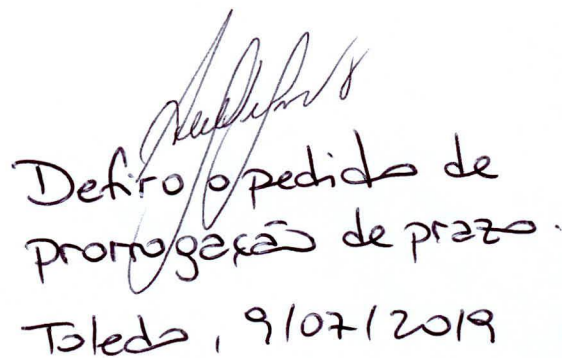 Defiro o pedido de
prorrogação de prazo.
Toledo, 9/07/2019